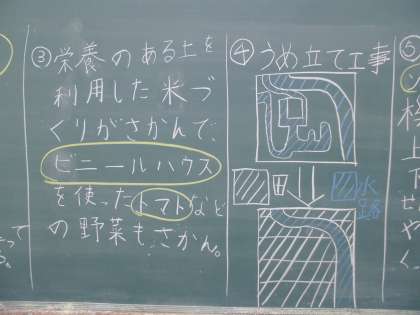 ③栄養のある土を
利用した米づ
くりがさかんで、
ビニールハウス
を使ったトマトなど
の野菜もさかん。
④うめ立て工事
田
水路
⑤